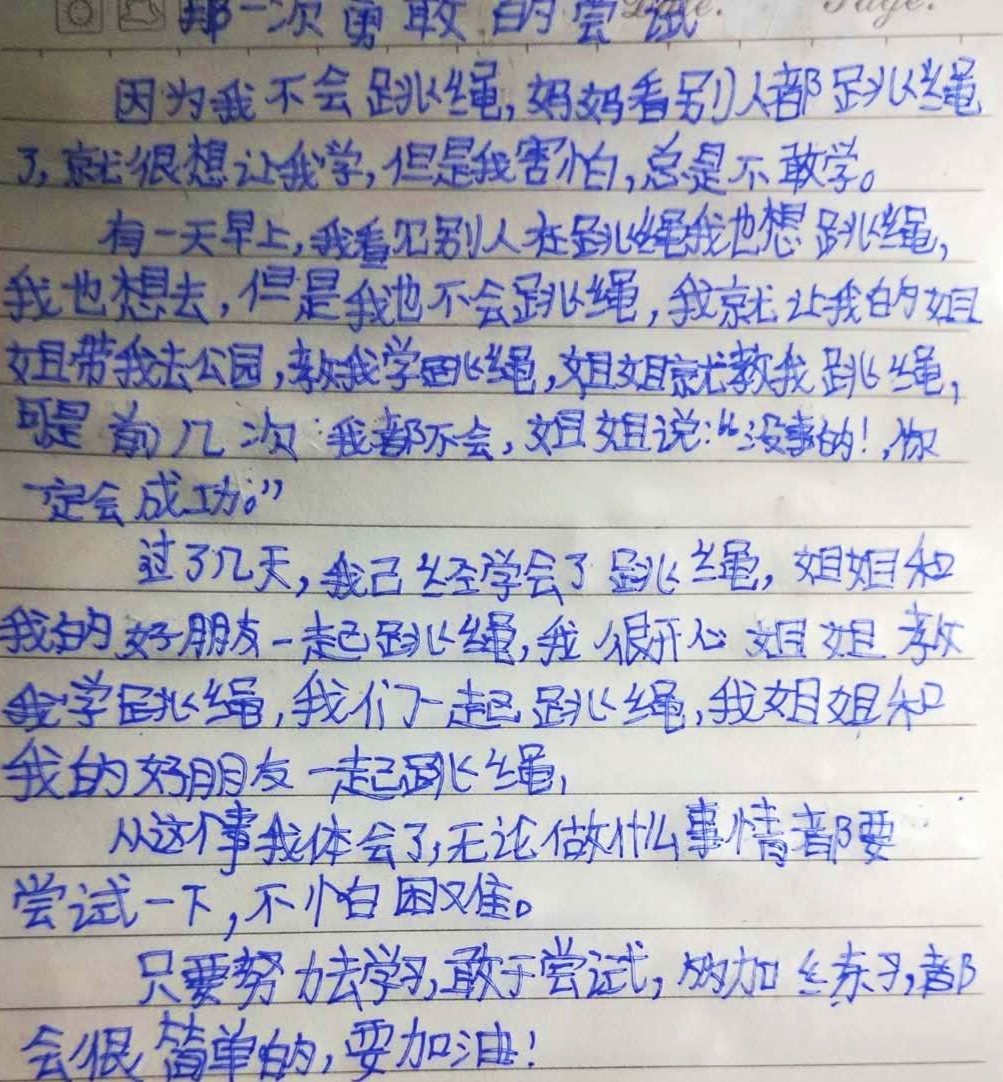 那一次勇敢的尝试
因为我不会跳绳,妈妈看别人都跳绳
了,就很想让我学,但是我害怕,总是不敢学。
有一天早上,我看见别人在跳绳我也想跳绳,
我也想去,但是我也不会跳绳,我就让我的姐
姐带我去公园,教我学跳绳,姐姐就教我跳绳,
可是前几次我都不会,姐姐说:“没事的!,你
一定会成功。”
过了几天,我己经学会了跳绳,姐姐和
我的好朋友一起跳绳,我很开心姐姐教
我学跳绳,我们一起跳绳,我姐姐和
我的好朋友一起跳绳,
从这个事我体会了,无论做什么事情都要
尝试一下,不怕困难。
只要努力去学习,敢于尝试,加练习,都
会很简单的,要加油!